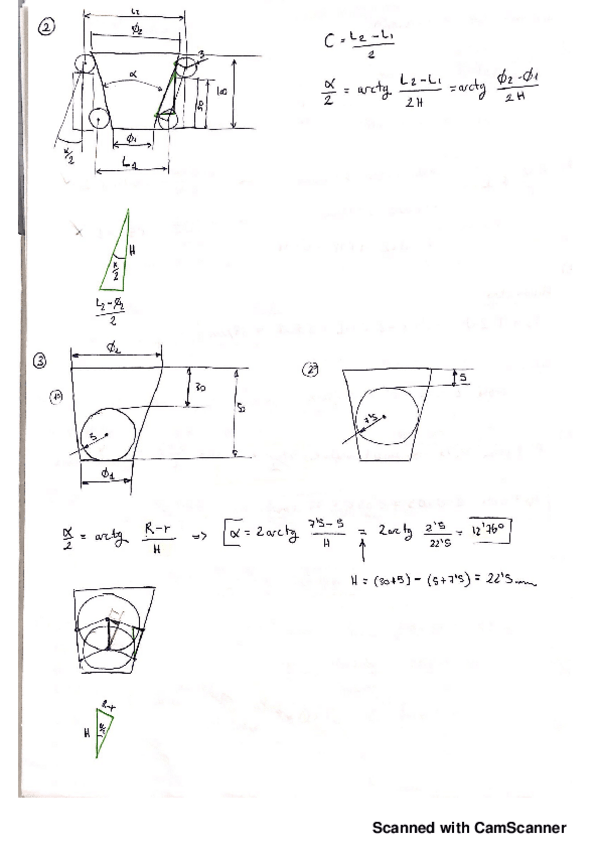 ②
L2
φ2
3
α
α/2
φ1
L1
C = (L2 - L1)/2
α/2 = arctg (L2 - L1)/2H = arctg (φ2 - φ1)/2H
H
α/2
(L2 - φ2)/2
③
φ2
30
5
φ1
2º
5
7'5
α/2 = arctg (R-r)/H => α = 2arctg (7'5 - 5)/H = 2arctg 2'5/22'5 = 12'76º
H = (30+5) - (5+7'5) = 22'5 mm
R-r
H
α/2
Scanned with CamScanner